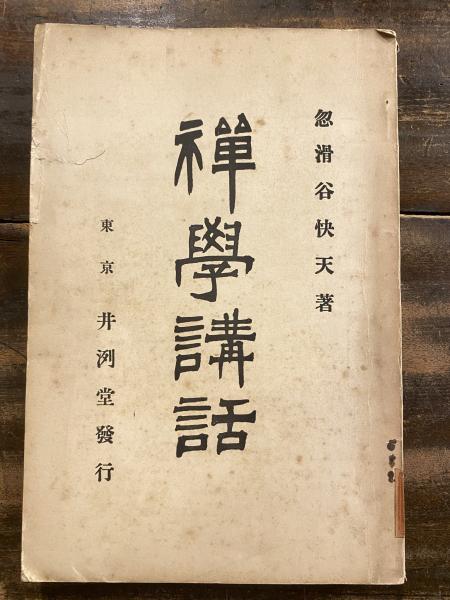 忽滑谷快天著
禪學講話
東京 井冽堂發行